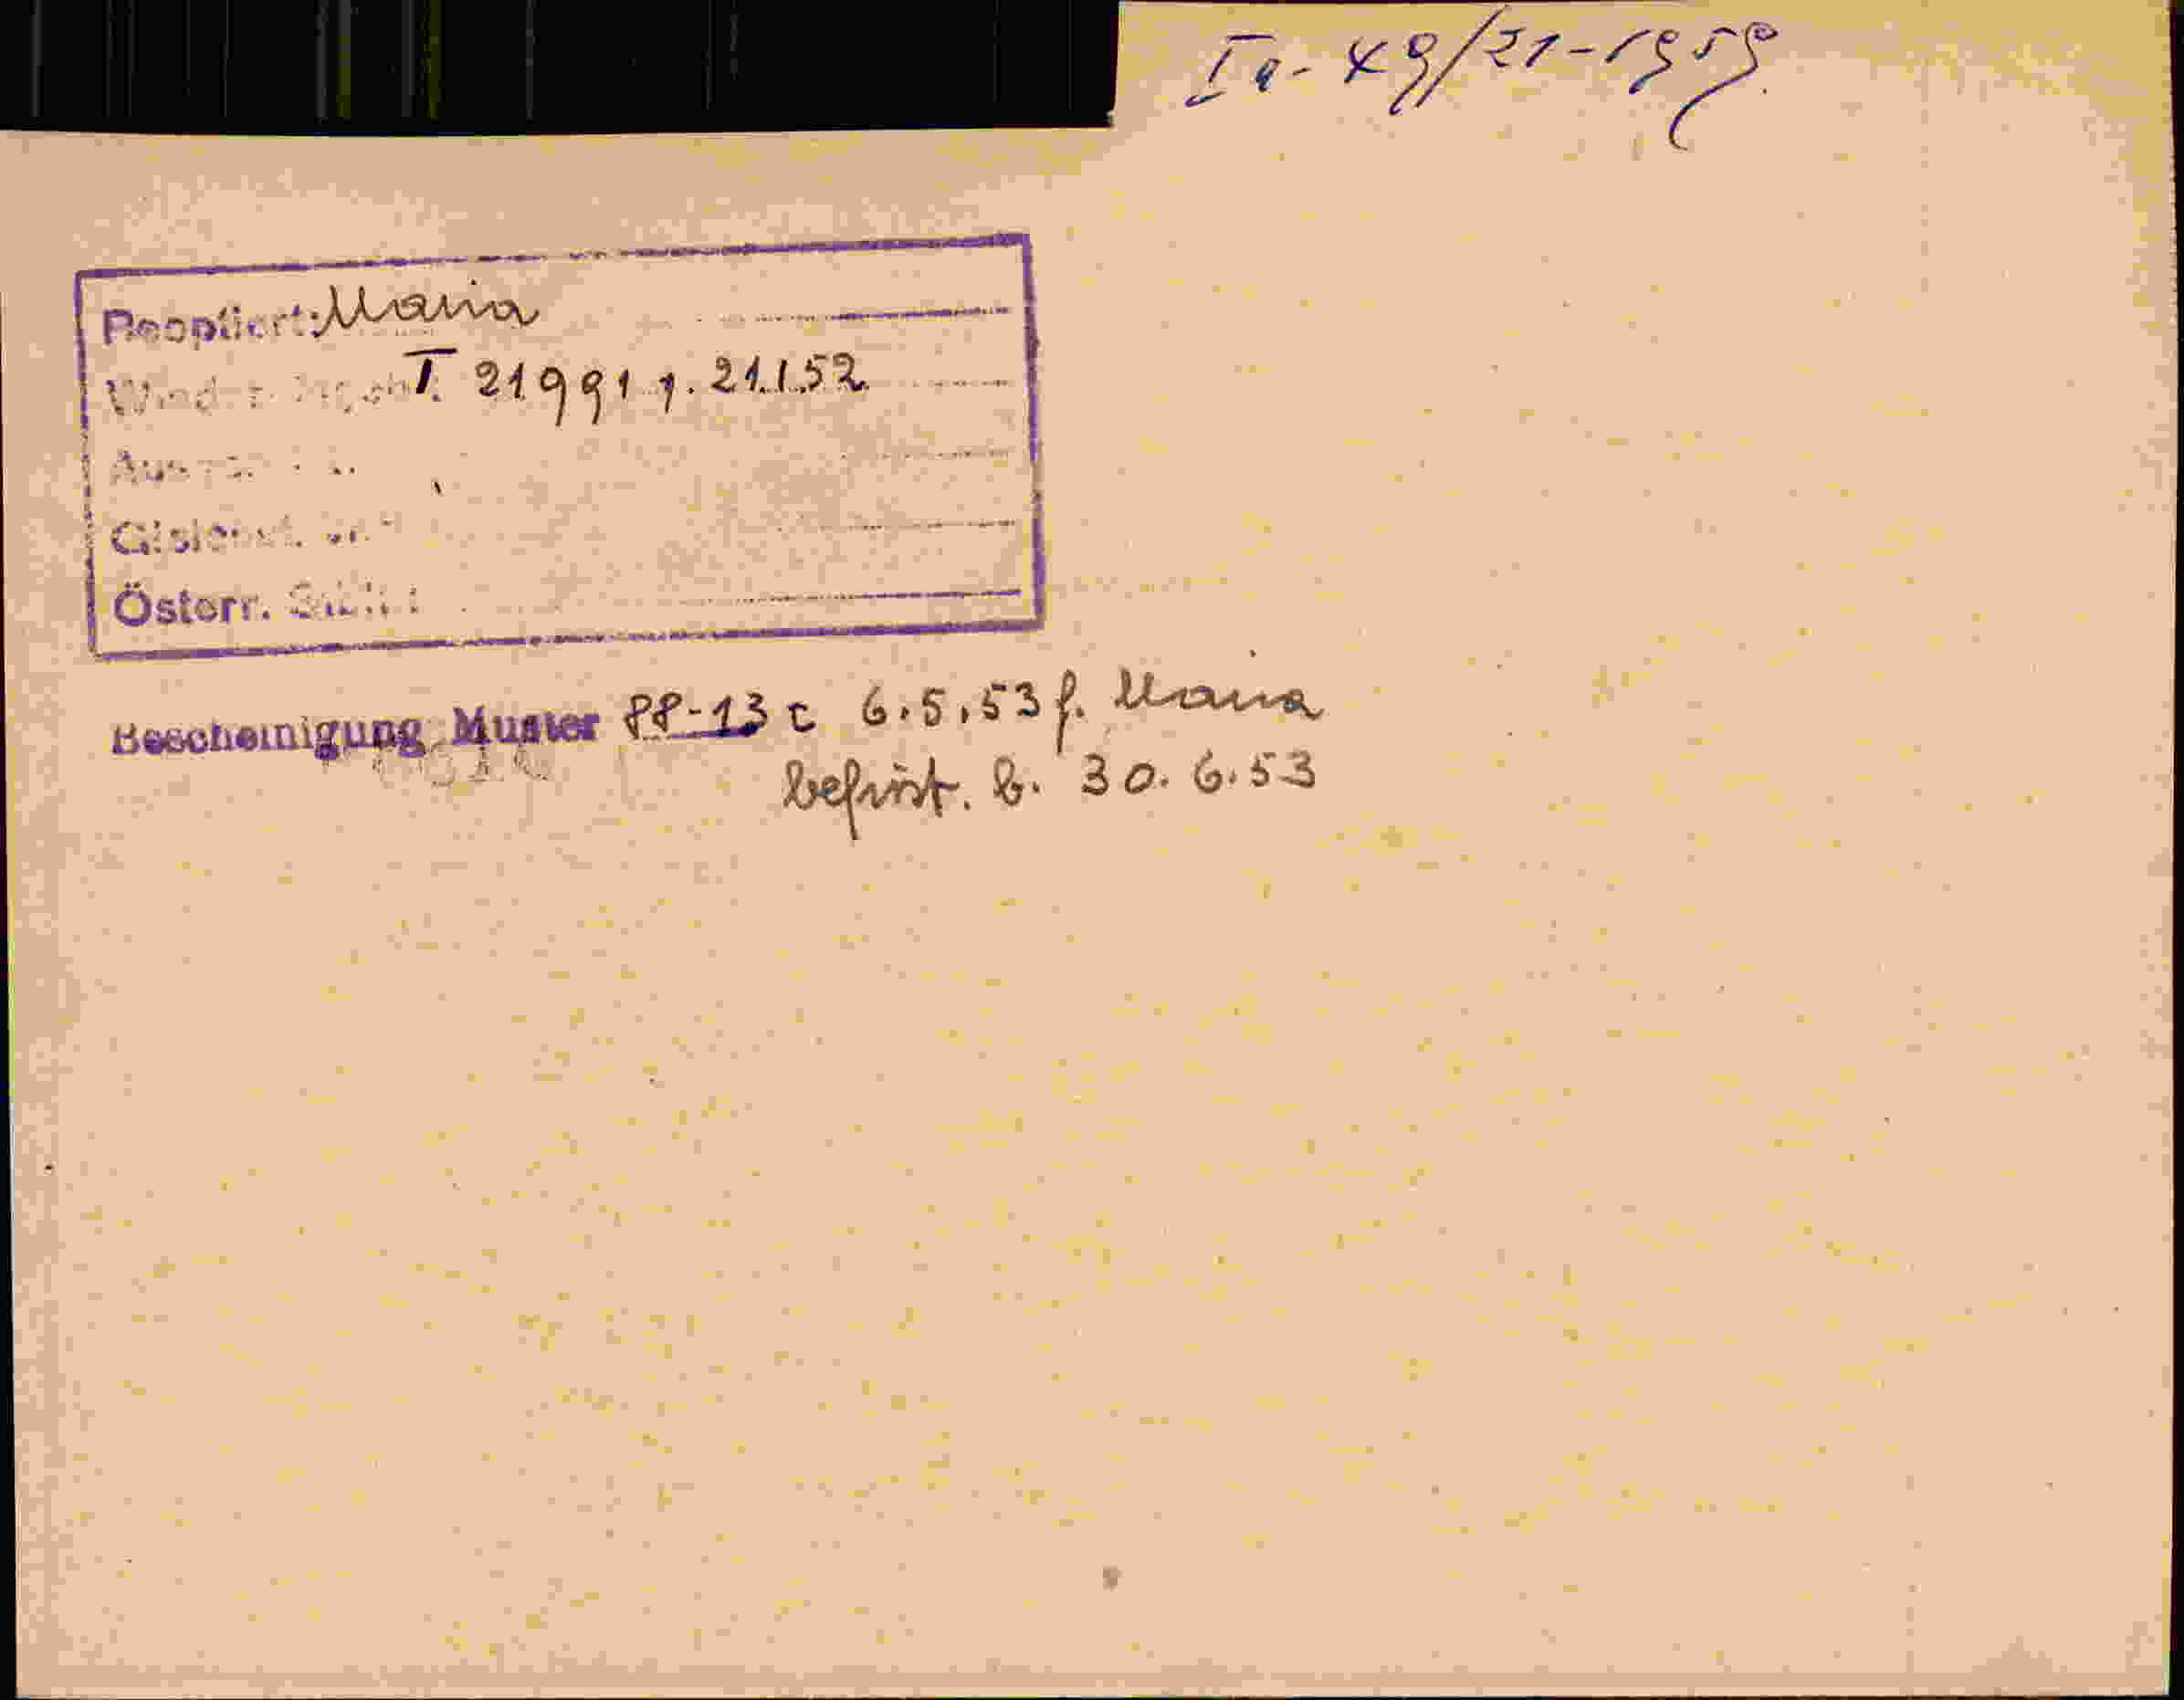 Ia - 49/21-1959.
Reoptiert: Maria
T 21991 v. 21.1.52
Österr.
Bescheinigung Muster 88-13 c 6.5.53 f. Maria
befrist. b. 30.6.53